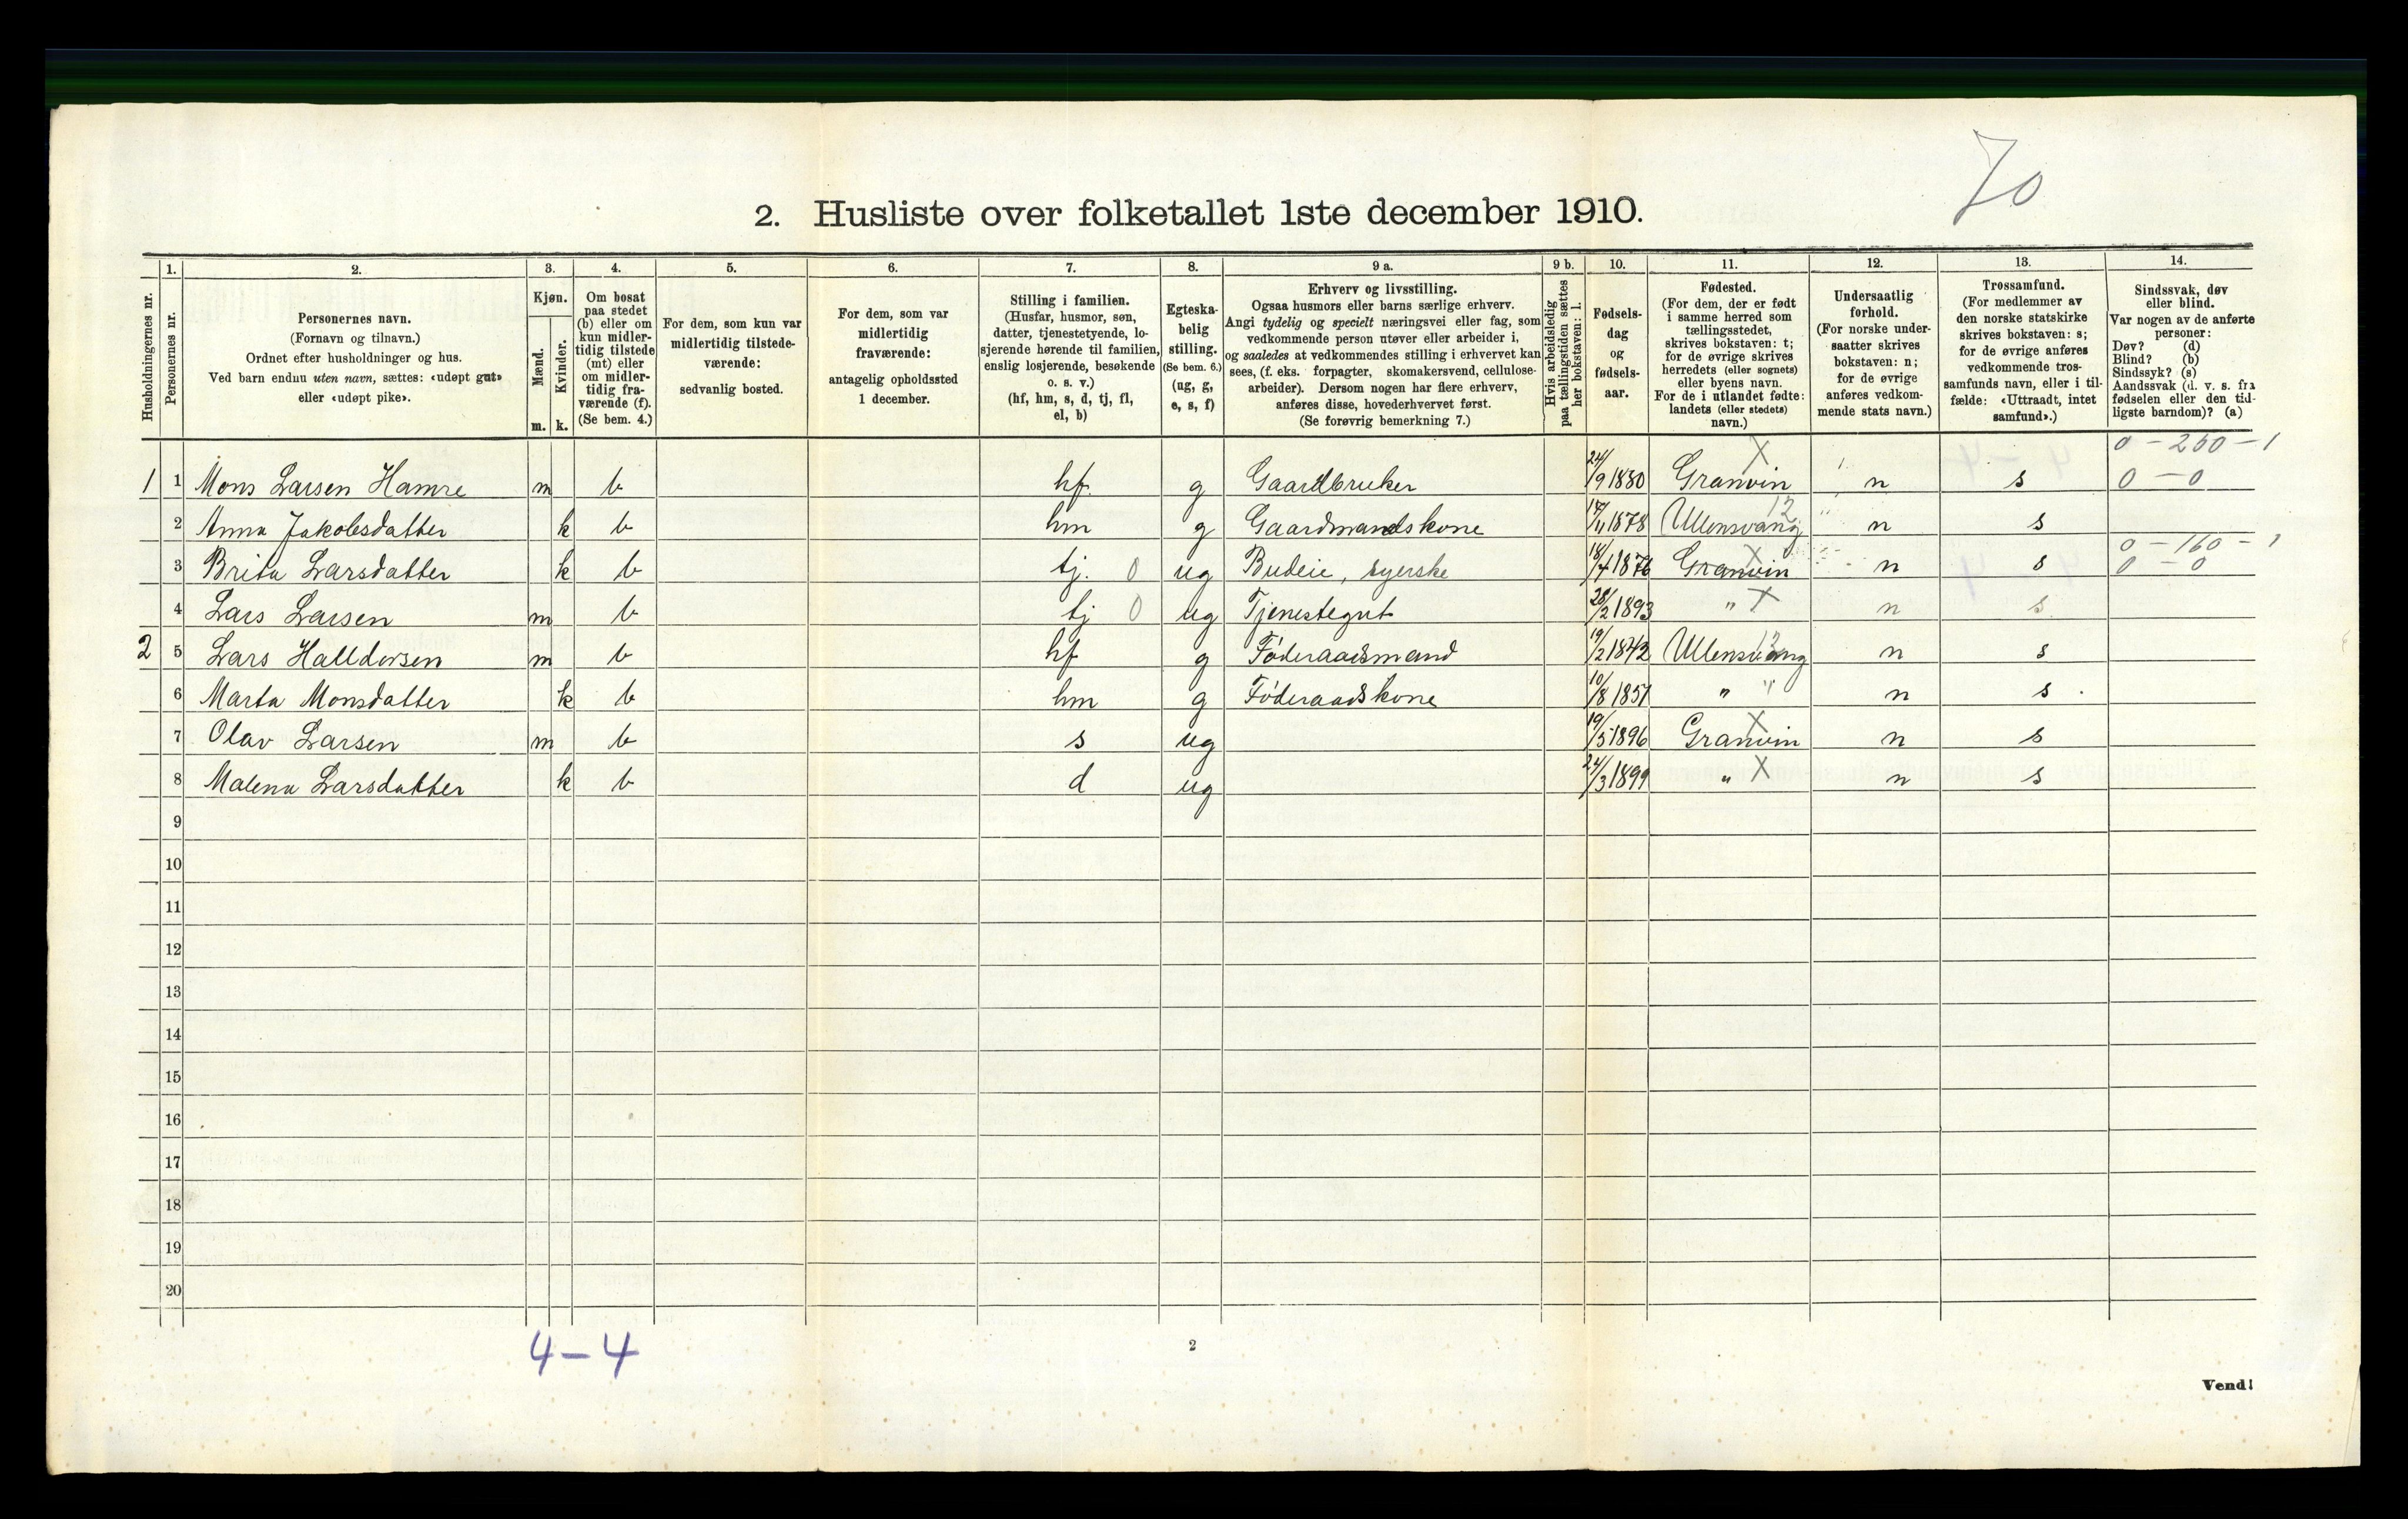 70
2. Husliste over folketallet 1ste december 1910.
Husholdningernes nr.
1.
Personernes nr.
2.
Personernes navn.
(Fornavn og tilnavn.)
Ordnet efter husholdninger og hus.
Ved barn endnu uten navn, sættes: «udøpt gut»
eller «udøpt pike».
3.
Kjøn.
Mænd.
Kvinder.
m. k.
4.
Om bosat
paa stedet
(b) eller om
kun midler-
tidig tilstede
(mt) eller
om midler-
tidig fra-
værende (f).
(Se bem. 4.)
5.
For dem, som kun var
midlertidig tilstede-
værende:
sedvanlig bosted.
6.
For dem, som var
midlertidig
fraværende:
antagelig opholdssted
1 december.
7.
Stilling i familien.
(Husfar, husmor, søn,
datter, tjenestetyende, lo-
sjerende hørende til familien,
enslig losjerende, besøkende
o. s. v.)
(hf, hm, s, d, tj, fl,
el, b)
8.
Egteska-
belig
stilling.
(Se bem. 6.)
(ug, g,
e, s, f)
9 a.
Erhverv og livsstilling.
Ogsaa husmors eller barns særlige erhverv.
Angi tydelig og specielt næringsvei eller fag, som
vedkommende person utøver eller arbeider i,
og saaledes at vedkommendes stilling i erhvervet kan
sees, (f. eks. forpagter, skomakersvend, cellulose-
arbeider). Dersom nogen har flere erhverv,
anføres disse, hovederhvervet først.
(Se forøvrig bemerkning 7.)
9 b.
Hvis arbeidsledig
paa tællingstiden sættes
her bokstaven: l.
10.
Fødsels-
dag
og
fødsels-
aar.
11.
Fødested.
(For dem, der er født
i samme herred som
tællingsstedet,
skrives bokstaven: t;
for de øvrige skrives
herredets (eller sognets)
eller byens navn.
For de i utlandet fødte:
landets (eller stedets)
navn.)
12.
Undersaatlig
forhold.
(For norske under-
saatter skrives
bokstaven: n;
for de øvrige
anføres vedkom-
mende stats navn.)
13.
Trossamfund.
(For medlemmer av
den norske statskirke
skrives bokstaven: s;
for de øvrige anføres
vedkommende tros-
samfunds navn, eller i til-
fælde: «Uttraadt, intet
samfund».)
14.
Sindssvak, døv
eller blind.
Var nogen av de anførte
personer:
Døv? (d)
Blind? (b)
Sindssyk? (s)
Aandssvak (d. v. s. fra
fødselen eller den tid-
ligste barndom)? (a)
0 - 260 - 1
1 1 Mons Larsen Hamre m b hf. g Gaardbruker 24/9 1880 Granvin X n s 0 - 0
2 Anna Jakobsdatter k b hm g Gaardmandskone 17/11 1878 Ullensvang 12 n s
0 - 160 - 1
3 Brita Larsdatter k b tj. 0 ug Budeie, syerske 18/7 1876 Granvin X n s 0 - 0
4 Lars Larsen m b tj 0 ug Tjenestegut 28/2 1893 " X n s
2 5 Lars Halldorsen m b hf g Føderaadsmand 19/2 1842 Ullensvang 12 n s
6 Marta Monsdatter k b hm g Føderaadskone 10/8 1851 " " n s
7 Olav Larsen m b s ug 19/5 1896 Granvin X n s
8 Malena Larsdatter k b d ug 24/3 1899 " X n s
9
10
11
12
13
14
15
16
17
18
19
20
4-4
2
Vend!